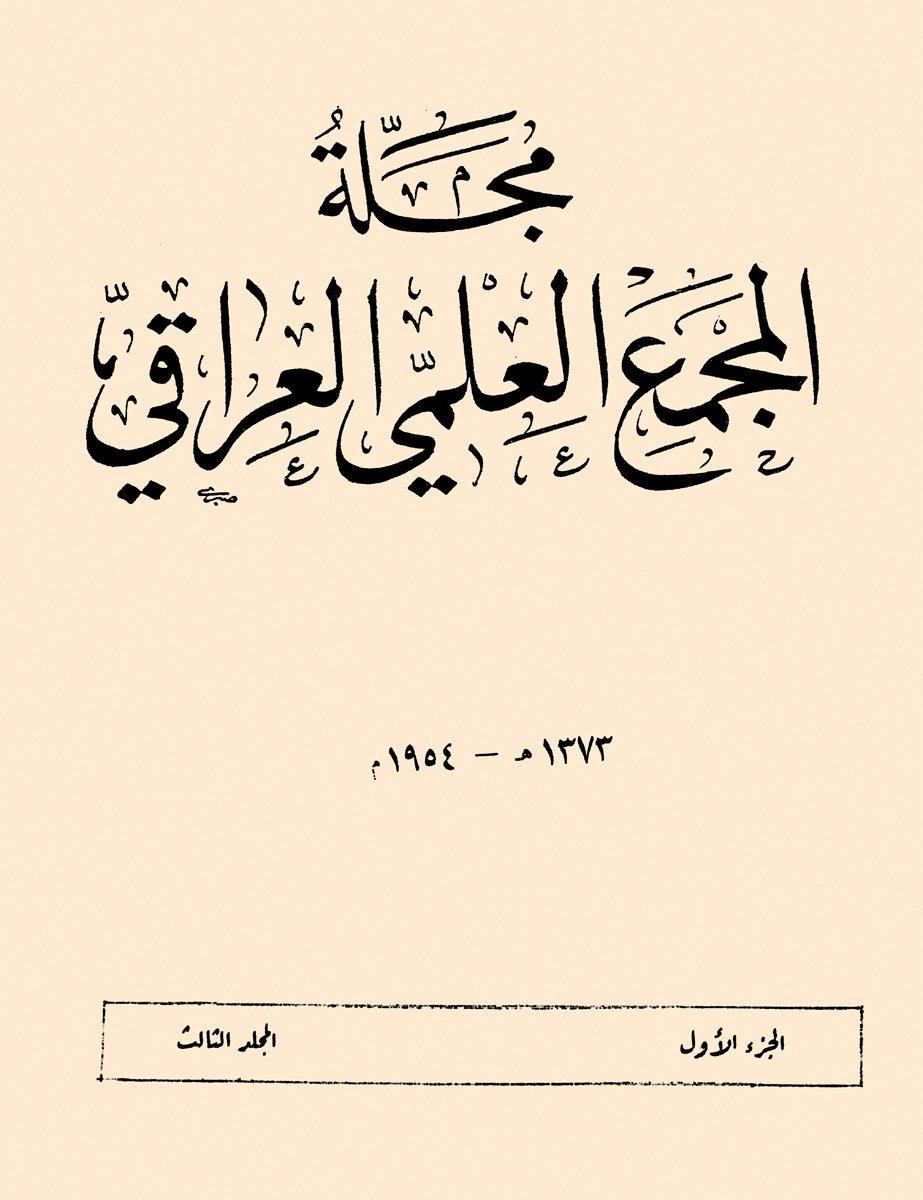 مَجَلَّةُ
المَجْمَعِ العِلْمِيِّ العِرَاقِيِّ
صبري
١٣٧٣ هـ – ١٩٥٤ م
الجزء الأول المجلد الثالث